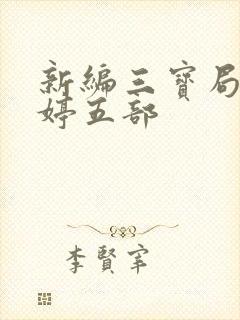 新編三寶局
婷五部
李賢宰